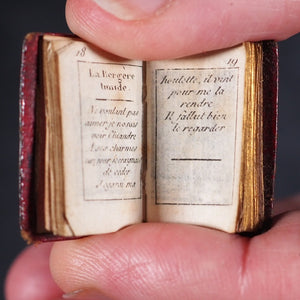 18
La Bergère
timide.
Ne voulant pas
aimer je n'osais
voir Silvandre
à ses charmes
car, pour je craignais
de céder
J'égarai ma
19
houlette, il vint
pour me la
rendre
Il fallut bien
le regarder